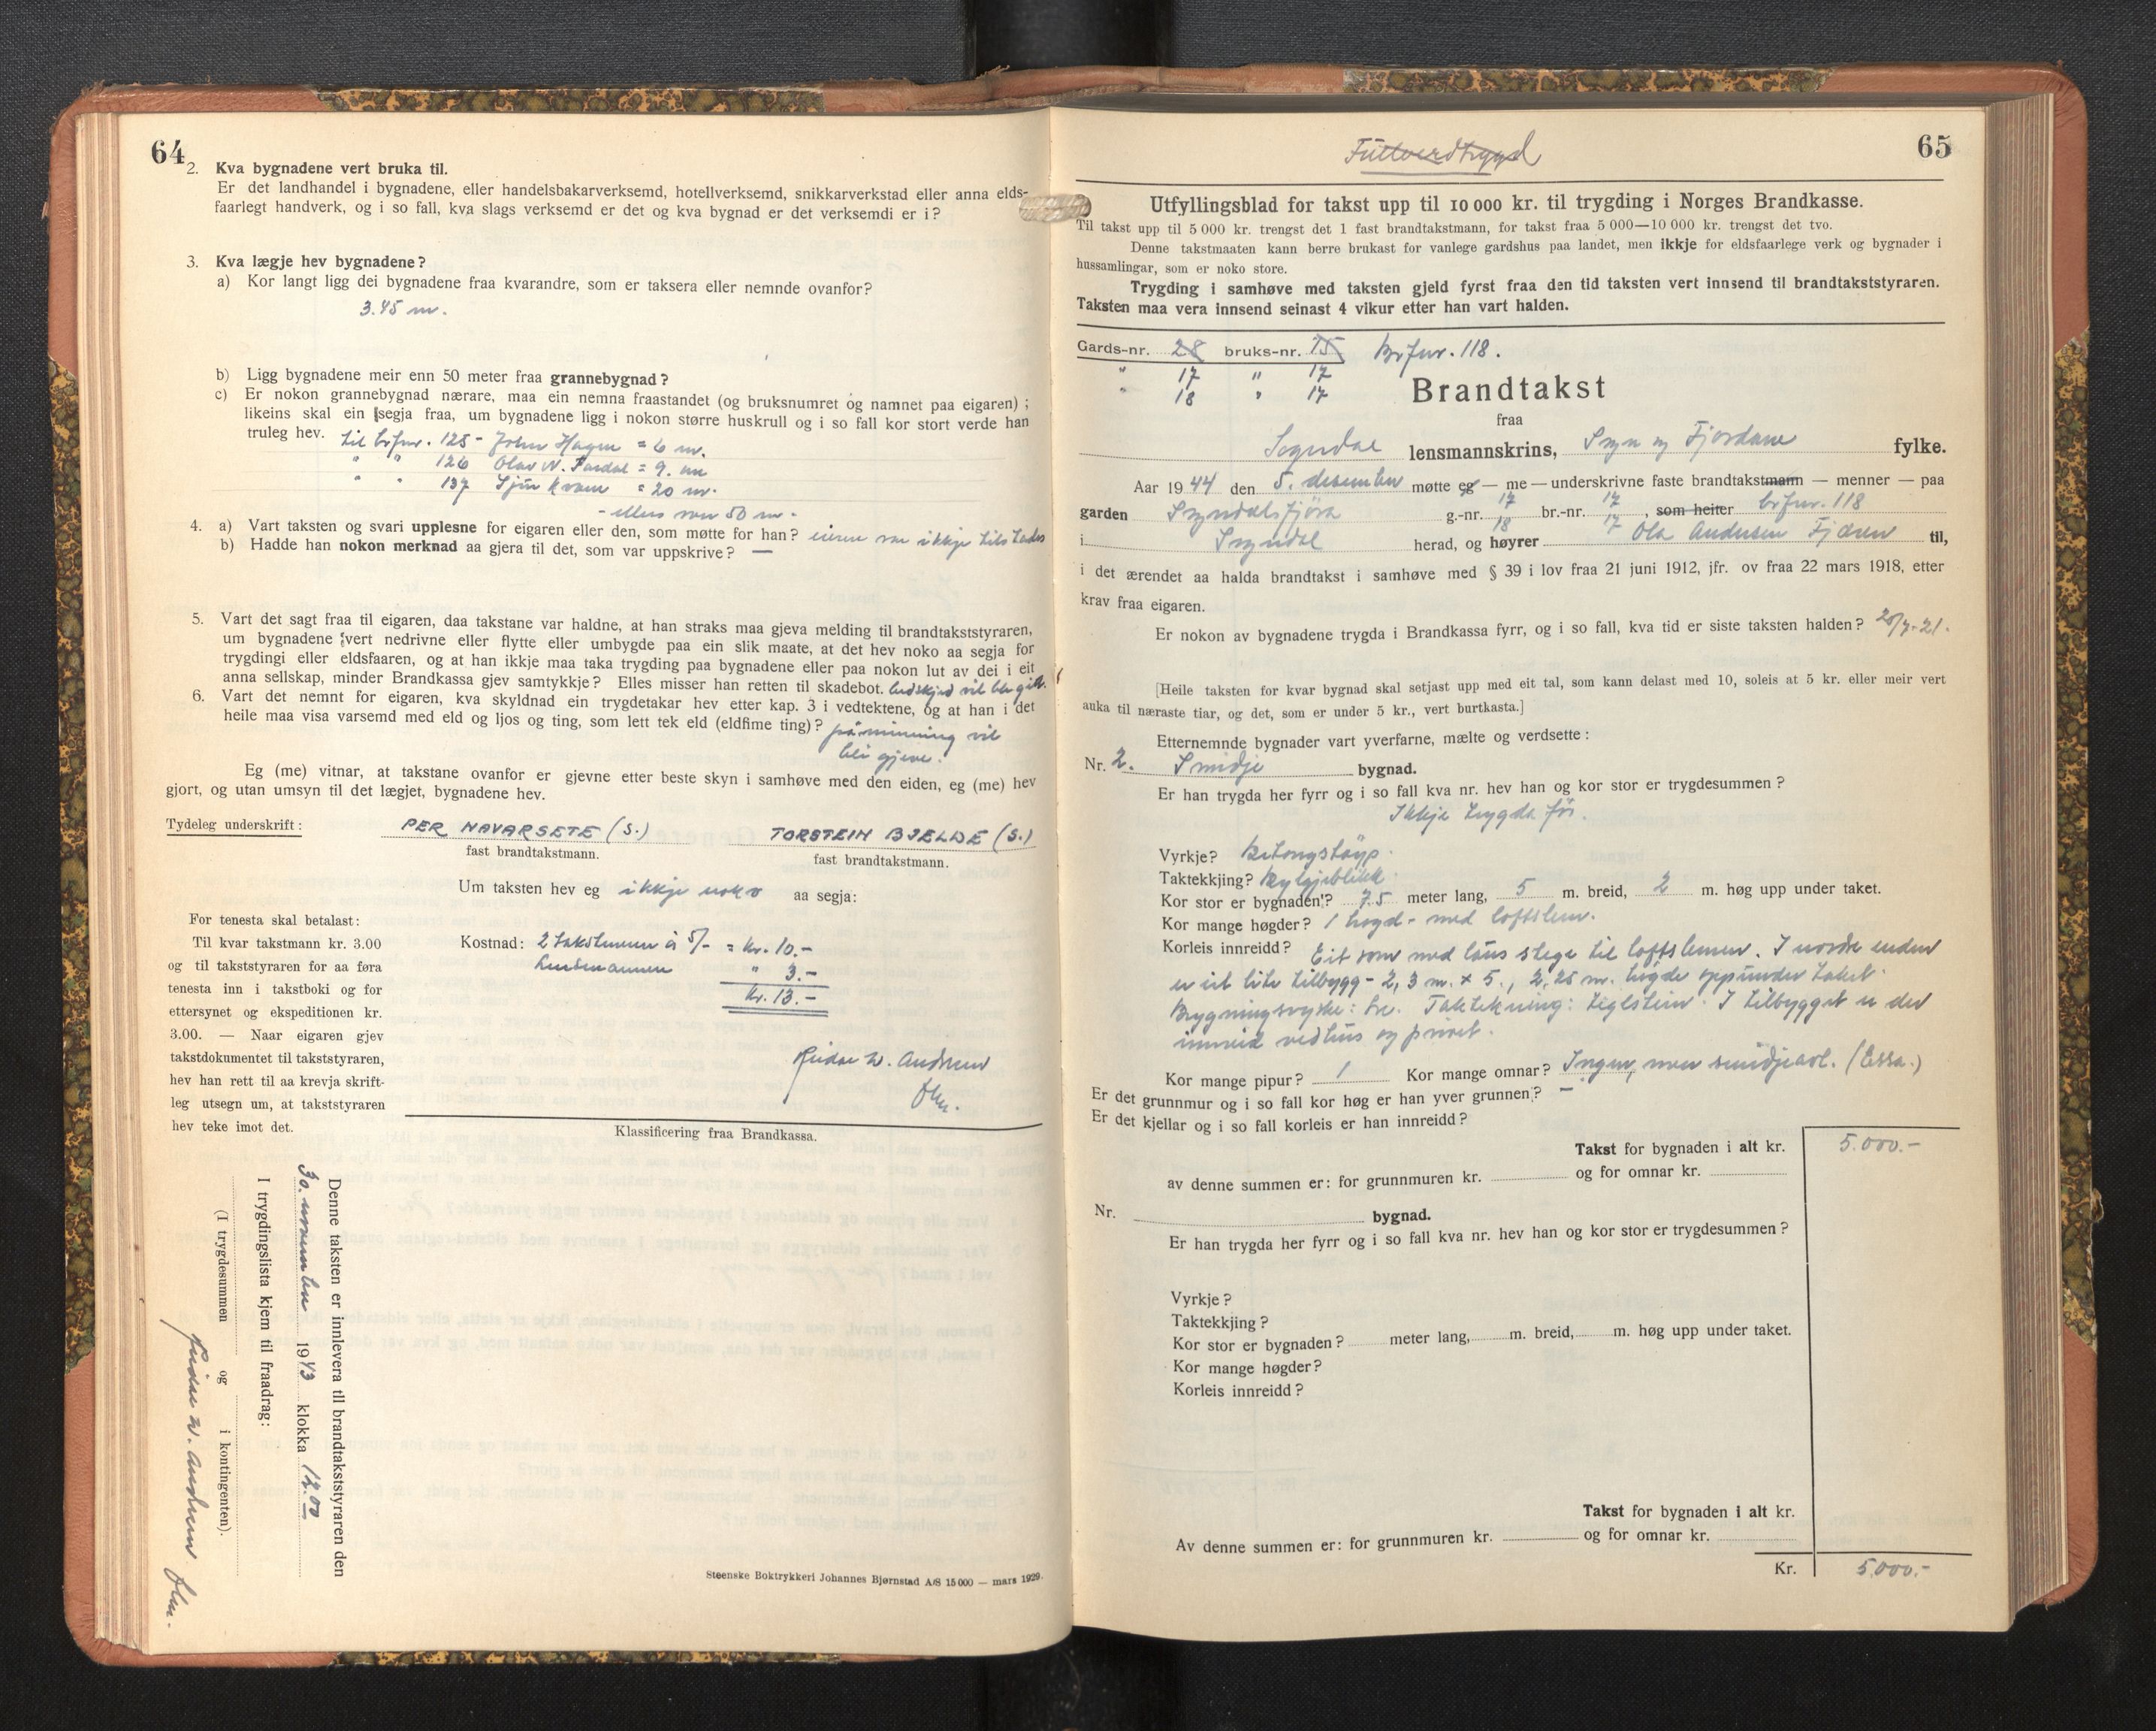 64
2. Kva bygnadene vert bruka til.
Er det landhandel i bygnadene, eller handelsbakarverksemd, hotellverksemd, snikkarverkstad eller anna elds-
faarlegt handverk, og i so fall, kva slags verksemd er det og kva bygnad er det verksemdi er i?
3. Kva lægje hev bygnadene?
a) Kor langt ligg dei bygnadene fraa kvarandre, som er taksera eller nemnde ovanfor?
3.45 m.
b) Ligg bygnadene meir enn 50 meter fraa grannebygnad?
c) Er nokon grannebygnad nærare, maa ein nemna fraastandet (og bruksnumret og namnet paa eigaren);
likeins skal ein segja fraa, um bygnadene ligg i nokon større huskrull og i so fall kor stort verde han
truleg hev. til brfnr. 125 - John Hagen = 6 m.
" " 126 Olav N. Fardal = 9. m
" " 137 Sjur Kvam = 20 m.
- ellers over 50 m.
4. a) Vart taksten og svari upplesne for eigaren eller den, som møtte for han? eieren var ikkje tilstades
b) Hadde han nokon merknad aa gjera til det, som var uppskrive? —
5. Vart det sagt fraa til eigaren, daa takstane var haldne, at han straks maa gjeva melding til brandtakststyraren,
um bygnadene vert nedrivne eller flytte eller umbygde paa ein slik maate, at det hev noko aa segja for
trygdingi eller eldsfaaren, og at han ikkje maa taka trygding paa bygnadene eller paa nokon lut av dei i eit
anna sellskap, minder Brandkassa gjev samtykkje? Elles misser han retten til skadebot. beskjed vil bli gitt.
6. Vart det nemnt for eigaren, kva skyldnad ein trygdetakar hev etter kap. 3 i vedtektene, og at han i det
heile maa visa varsemd med eld og ljos og ting, som lett tek eld (eldfime ting)? påminning vil
bli gjeve.
Eg (me) vitnar, at takstane ovanfor er gjevne etter beste skyn i samhøve med den eiden, eg (me) hev
gjort, og utan umsyn til det lægjet, bygnadene hev.
Tydeleg underskrift: PER NAVARSETE (S.) TORSTEIN BJELDE (S.)
fast brandtakstmann. fast brandtakstmann.
Um taksten hev eg ikkje noko aa segja:
For tenesta skal betalast:
Til kvar takstmann kr. 3.00
og til takststyraren for aa føra
tenesta inn i takstboki og for
ettersynet og ekspeditionen kr.
3.00. — Naar eigaren gjev
takstdokumentet til takststyraren,
hev han rett til aa krevja skrift-
leg utsegn um, at takststyraren
hev teke imot det.
Kostnad: 2 takstmenn à 5/- = kr. 10.-
Lensmannen " 3.-
kr. 13.-
Reidar W. Andresen
fhm.
Klassificering fraa Brandkassa.
Denne taksten er innlevera til brandtakststyraren den
30. november 1943 klokka 12.00
I trygdingslista kjem til fraadrag:
(I trygdesummen og i kontingenten).
Reidar W. Andresen fhm.
Steenske Boktrykkeri Johannes Bjørnstad A/S 15000 — mars 1929.
65
Fullverdtrygd
Utfyllingsblad for takst upp til 10 000 kr. til trygding i Norges Brandkasse.
Til takst upp til 5 000 kr. trengst det 1 fast brandtakstmann, for takst fraa 5 000—10 000 kr. trengst det tvo.
Denne takstmaaten kann berre brukast for vanlege gardshus paa landet, men ikkje for eldsfaarlege verk og bygnader i
hussamlingar, som er noko store.
Trygding i samhøve med taksten gjeld fyrst fraa den tid taksten vert innsend til brandtakststyraren.
Taksten maa vera innsend seinast 4 vikur etter han vart halden.
Gards-nr. 28 bruks-nr. 15 brfnr. 118.
" 17 " 17
" 18 " 17
Brandtakst
fraa
Sogndal lensmannskrins, Sogn og Fjordane fylke.
Aar 1944 den 5. desember møtte eg — me — underskrivne faste brandtakstmann — menner — paa
garden Sogndalsfjöra g.-nr. 17 18 br.-nr. 17 17, som heiter brfnr. 118
i Sogndal herad, og høyrer Ola Andersen Fjæren til,
i det ærendet aa halda brandtakst i samhøve med § 39 i lov fraa 21 juni 1912, jfr. ov fraa 22 mars 1918, etter
krav fraa eigaren.
Er nokon av bygnadene trygda i Brandkassa fyrr, og i so fall, kva tid er siste taksten halden? 20/7-21.
[Heile taksten for kvar bygnad skal setjast upp med eit tal, som kann delast med 10, soleis at 5 kr. eller meir vert
auka til næraste tiar, og det, som er under 5 kr., vert burtkasta.]
Etternemnde bygnader vart yverfarne, mælte og verdsette:
Nr. 2. Smidje bygnad.
Er han trygda her fyrr og i so fall kva nr. hev han og kor stor er trygdesummen?
Ikkje trygda för.
Vyrkje? Betongstöyp.
Taktekkjing? Bylgjeblikk
Kor stor er bygnaden? 7.5 meter lang, 5 m. breid, 2 m. høg upp under taket.
Kor mange høgder? 1 högd - med loftslem.
Korleis innreidd? Eit rom med laus stege til loftslemen. I nordre enden
er eit lite tilbygg - 2,3 m. x 5., 2,25 m. högde opp under taket.
Bygningsvyrke: tre. Taktekning: teglstein. I tilbygget er der
innreid vedhus og privet.
Kor mange pipur? 1 Kor mange omnar? Ingen, men smidjeavl. (Essa.)
Er det grunnmur og i so fall kor høg er han yver grunnen? —
Er det kjellar og i so fall korleis er han innreidd?
Takst for bygnaden i alt kr. 5.000.-
av denne summen er: for grunnmuren kr. og for omnar kr.
Nr. bygnad.
Er han trygda her fyrr og i so fall kva nr. hev han og kor stor er trygdesummen?
Vyrkje?
Taktekkjing?
Kor stor er bygnaden? meter lang, m. breid, m. høg upp under taket.
Kor mange høgder?
Korleis innreidd?
Takst for bygnaden i alt kr.
Av denne summen er: for grunnmuren kr. og for omnar kr.
Kr. 5.000.-